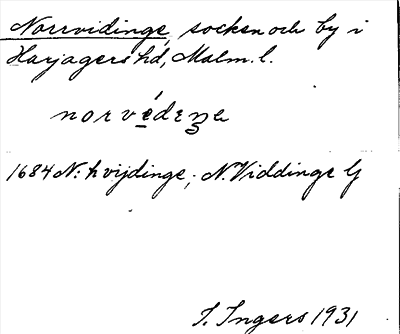 Norrvidinge, socken och by i
Harjagers hd, Malm. l.
norvédeŋe
1684 N: hvijdinge; N. Viddinge G
I. Ingers 1931